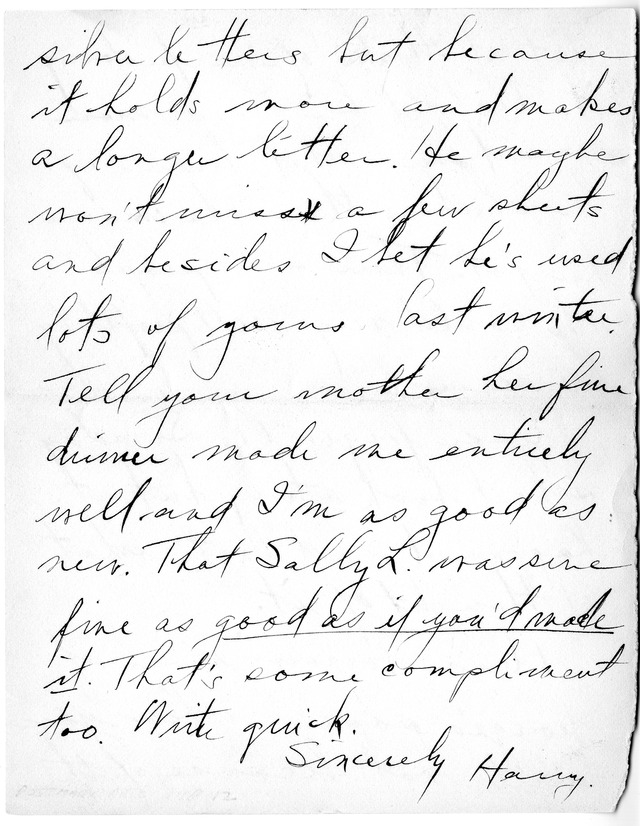 silver letters but because
it holds more and makes
a longer letter. He maybe
won't miss a few sheets
and besides I bet he's used
lots of yours last winter.
Tell your mother her fine
dinner made me entirely
well and I'm as good as
new. That Sally L. was sure
fine as good as if you'd made
it. That's some compliment
too. Write quick.
Sincerely Harry.